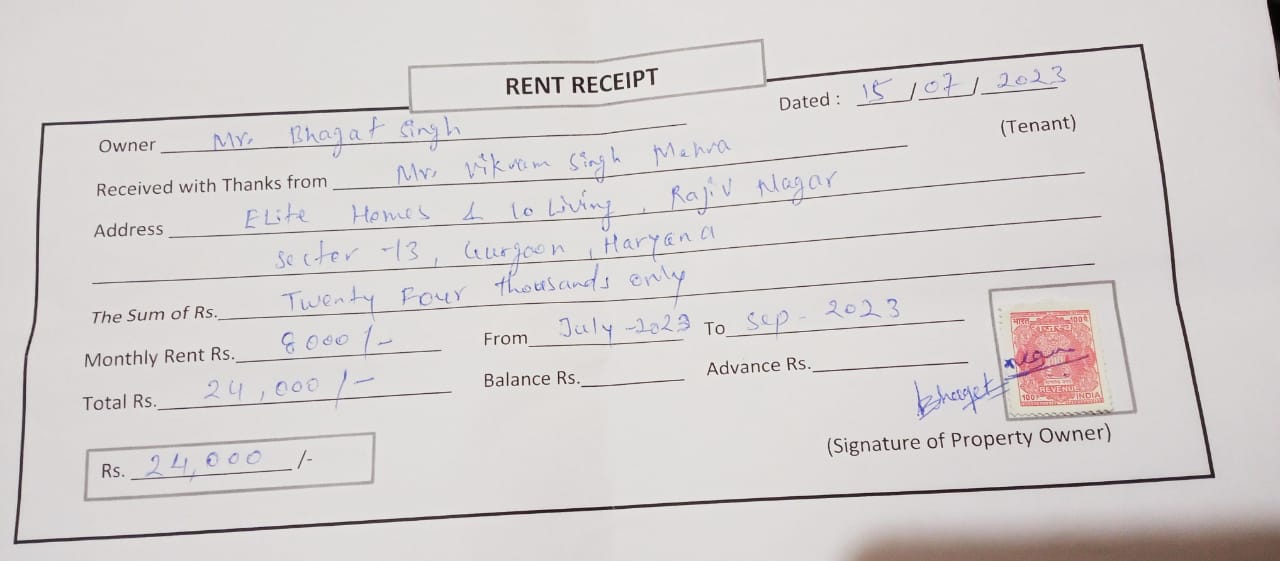 RENT RECEIPT
Dated : 15 / 07 / 2023
Owner Mr. Bhagat Singh
Received with Thanks from Mr. Vikram Singh Mehra (Tenant)
Address ELite Homes & Co Living, Rajiv Nagar
Sector -13, Gurgaon, Haryana
The Sum of Rs. Twenty Four thousands only
Monthly Rent Rs. 8000/- From July-2023 To Sep-2023
Total Rs. 24,000/- Balance Rs. Advance Rs.
भारत 100पै
राजस्व
REVENUE
100 INDIA
Bhagat
(Signature of Property Owner)
Rs. 24,000 /-